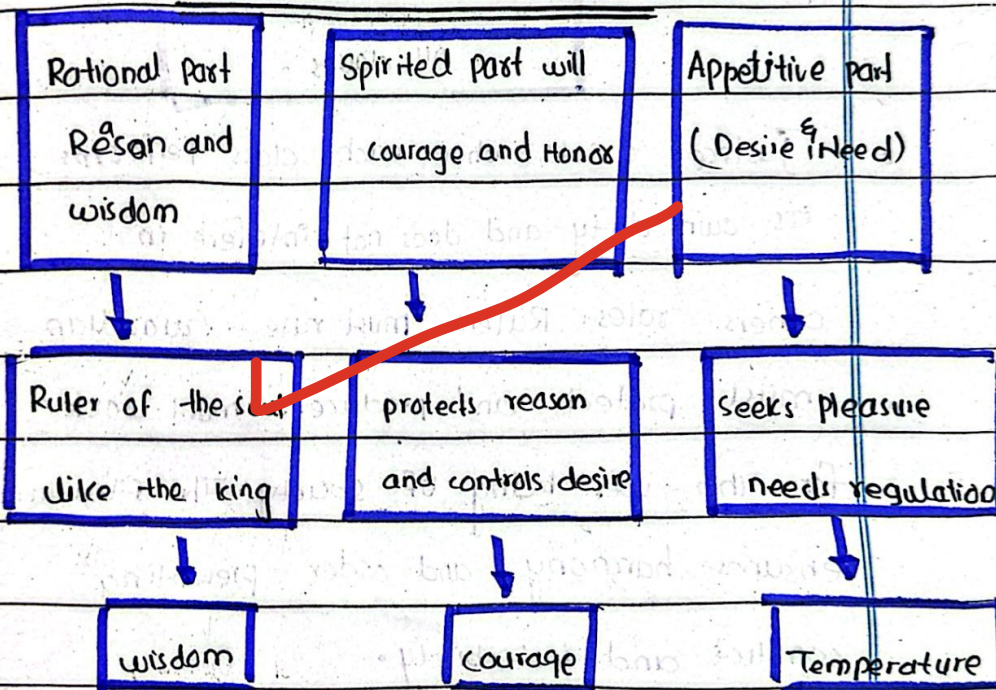 Rational Part
Reason and
wisdom
Spirited part will
courage and Honor
Appetitive part
(Desire & Need)
Ruler of the soul
like the king
protects reason
and controls desire
seeks pleasure
needs regulation
wisdom
courage
Temperature